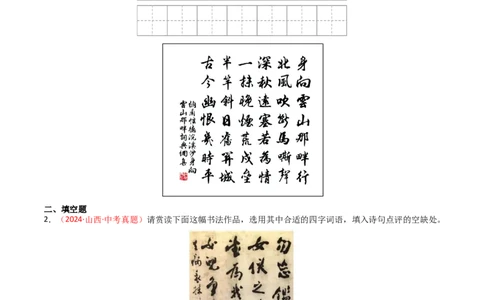 身向雲山那畔行
北風吹斷馬嘶聲
深秋遠塞若為情
一抹晚煙荒戍壘
半竿斜日舊關城
古今幽恨幾時平
納蘭性德浣溪沙身向
雲山那畔詞
二、填空题
2．（2024·山西·中考真题）请赏读下面这幅书法作品，选用其中合适的四字词语，填入诗句点评的空缺处。
勿忘鑑
女儀之